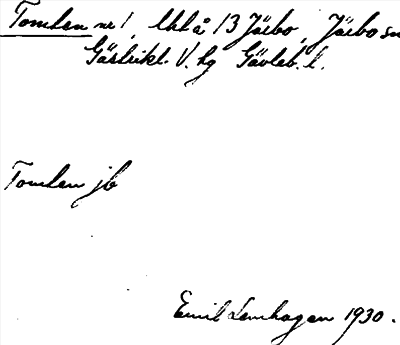 Tomten nr 1, Ihlå 13 Järbo, Järbo sn
Gästrikl. V. hg Gävleb. l.
Tomten jb
Emil Lenhagen 1930.